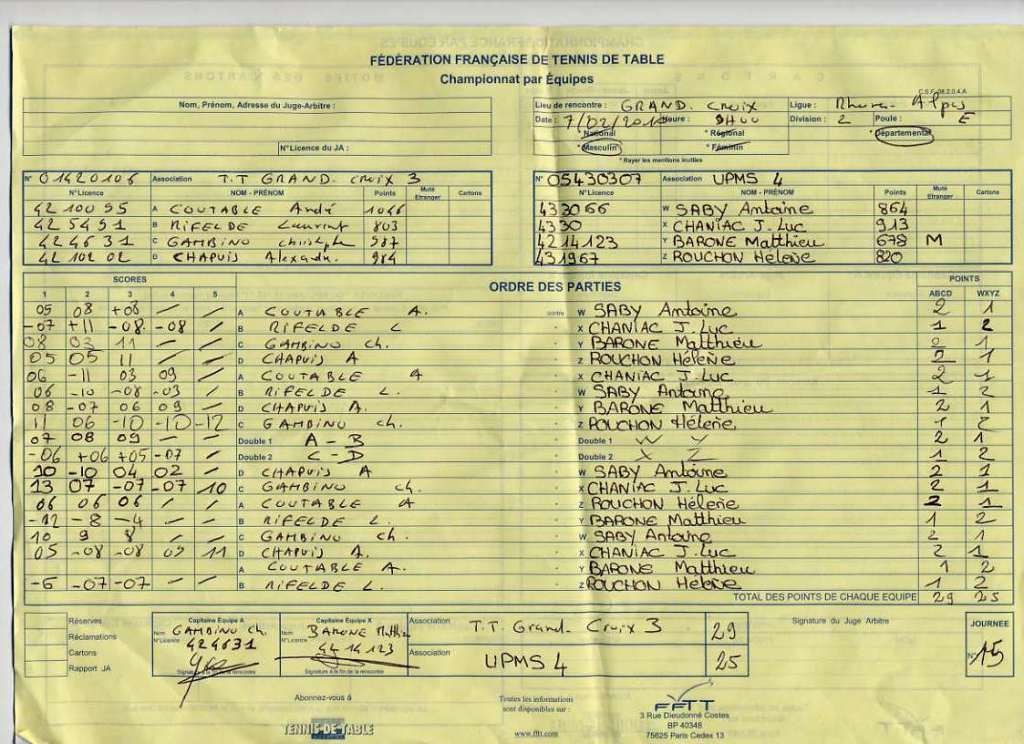 FÉDÉRATION FRANÇAISE DE TENNIS DE TABLE
Championnat par Équipes
C.S.F. 08.2.0.4.A
Nom, Prénom, Adresse du Juge-Arbitre :
N°Licence du JA :
Lieu de rencontre : GRAND. CROIX Ligue : Rhône- Alpes
Date : 7/02/2010 Heure : 9H00 Division : 2 Poule : E
* National * Régional * Départemental
* Masculin * Féminin
* Rayer les mentions inutiles
N° 01420106 Association T.T GRAND. CROIX 3
N°Licence NOM - PRÉNOM Points Muté Etranger Cartons
42 100 95 A COUTABLE André 1046
42 5451 B RIFELDE Laurent 803
42 4631 C GAMBINO christoph 987
42 102 02 D CHAPUIS Alexandre 984
N° 05430307 Association UPMS 4
N°Licence NOM - PRÉNOM Points Muté Etranger Cartons
433066 W SABY Antoine 864
4330 X CHANIAC J. Luc 913
4214123 Y BARONE Matthieu 678 M
431967 Z ROUCHON Hélène 820
SCORES ORDRE DES PARTIES POINTS
1 2 3 4 5 ABCD WXYZ
05 08 +08 / / A COUTABLE A. contre W SABY Antoine 2 1
-07 +11 -08 -08 / B RIFELDE L " X CHANIAC J. Luc 1 2
08 03 11 / / C GAMBINO ch. " Y BARONE Matthieu 2 1
05 05 11 / / D CHAPUIS A " Z ROUCHON Hélène 2 1
06 -11 03 09 / A COUTABLE A " X CHANIAC J. Luc 2 1
06 -10 -08 -03 / B RIFELDE L. " W SABY Antoine 1 2
08 -07 06 09 / D CHAPUIS A. " Y BARONE Matthieu 2 1
11 06 -10 -10 -12 C GAMBINO ch. " Z ROUCHON Hélène 1 2
07 08 09 / / Double 1 A - B " Double 1 W Y 2 1
-06 +06 +05 -07 / Double 2 C - D " Double 2 X Z 1 2
10 -10 04 02 / D CHAPUIS A " W SABY Antoine 2 1
13 07 -07 -07 10 C GAMBINO ch. " X CHANIAC J. Luc 2 1
06 06 06 / / A COUTABLE A " Z ROUCHON Hélène 2 1
-12 -8 -4 / / B RIFELDE L. " Y BARONE Matthieu 1 2
10 9 8 / / C GAMBINO ch. " W SABY Antoine 2 1
05 -08 -08 09 11 D CHAPUIS A. " X CHANIAC J. Luc 2 1
A COUTABLE A. " Y BARONE Matthieu 1 2
-6 -07 -07 / / B RIFELDE L. " Z ROUCHON Hélène 1 2
TOTAL DES POINTS DE CHAQUE EQUIPE 29 25
Réserves
Réclamations
Cartons
Rapport JA
Capitaine Équipe A
Nom GAMBINO Ch.
N°Licence 424631
Signature à la fin de la rencontre
Capitaine Équipe X
Nom BARONE Matthieu
N°Licence 4214123
Signature à la fin de la rencontre
Association T.T. Grand- Croix 3 29
Association UPMS 4 25
Signature du Juge Arbitre
JOURNEE
N° 15
Abonnez-vous à
TENNIS DE TABLE
Toutes les informations
sont disponibles sur :
www.fftt.com
FFTT
3 Rue Dieudonné Costes
BP 40348
75625 Paris Cedex 13